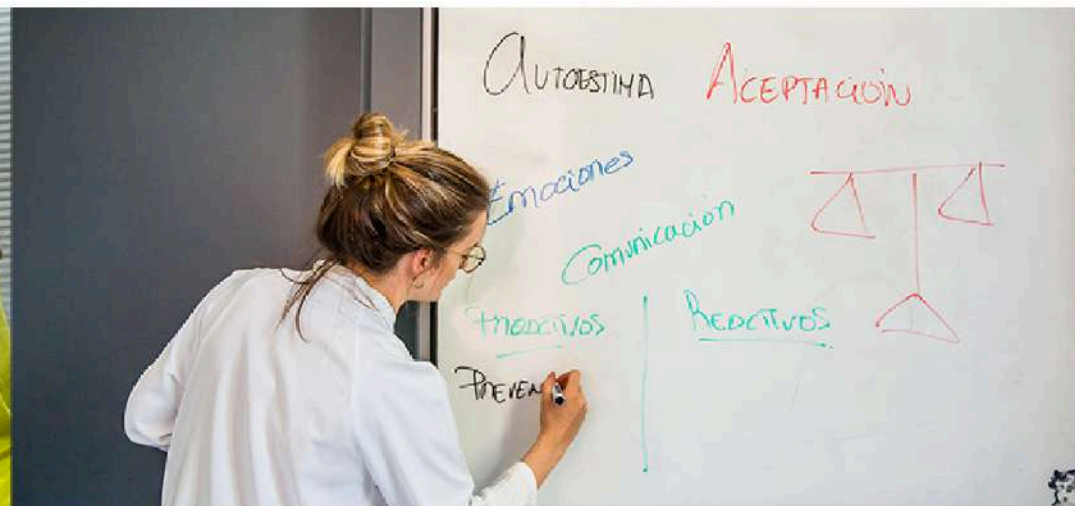 AUTOESTIMA ACEPTACIÓN
Emociones
Comunicación
PROACTIVOS REACTIVOS
PREVEN